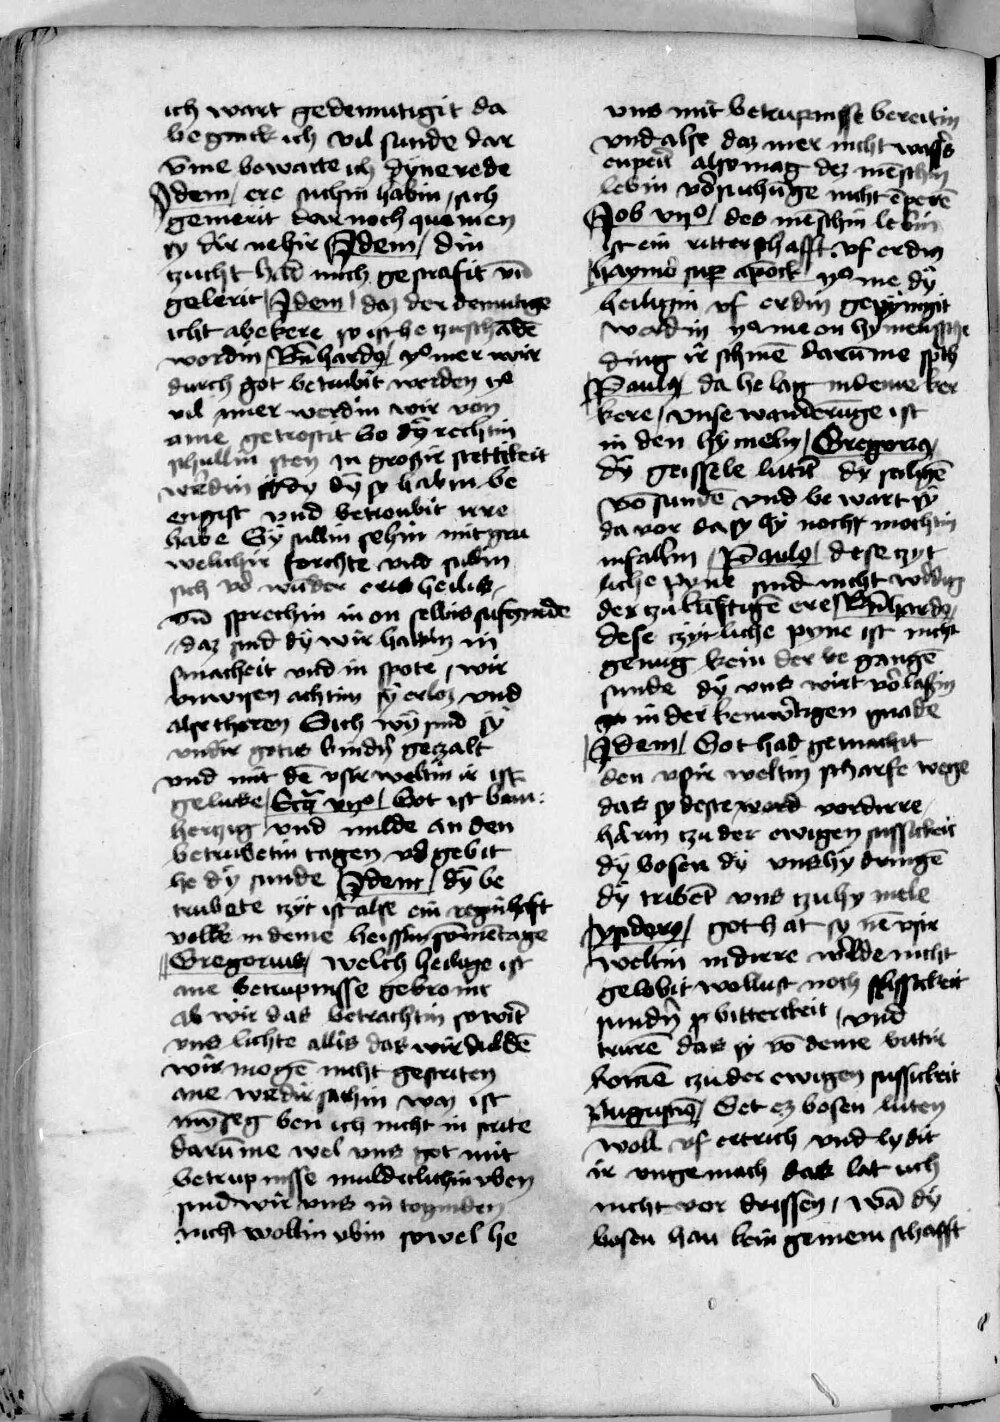 ich wart gedemutigit da
beginck ich vil sunde dar
vm̄e bowarte ich dyne rede
Jdem / ere suchin habin / sich
gemerit dar noch quamen
sy dir nehir Jdem / din
tzucht had mich gestrafit vn̄
gelerit / Jdem / daz der demutige
icht abekere so ist he tzuschādē
wordin / Bn̄hardꝰ / yᵒ mer wir
durch got betrubit werden ye
vil mer werdin wir von
ome getrostit So dy rechtin
schullin sten in groszir stettikeit
werdin dy sy habin be
engist vnd betroubit irre
habe Sy sullin sehin mit gru
welichir forchte vnd sullin
sich vor wūder eris heilis /
vn̄ sprechin in on selbis sufczinde
/ daz sind dy wir hattin in
smacheit vnd in spote / wir
vnwysen achtin sy erloz vnd
alse thoren Sich wy sind sy
vndir gotis kindir geczalt
vnd mit dē vsir weltin ir ist
gelucke / vnᵒ / Got ist bam:
hertzig vnd milde an den
betrubetin tagen vor gebit
he dy sunde Jdem / dy be
trubete tzyt ist alse ein reginhaft
volke in deme heissin som̄etage
Gregorius / welch heilige ist
ane betrupnisse gekronit
Ab wir das betrachtin so wirt
vns lichte allis das wir duldē
wir mogē nicht gestriten
ane wedirsachin wan ist
ben ich nicht in strite
darūme wel vns got mit
betrupnisse mildeclichin vben
sind wir vns in togunden
nicht wollin vbin so wel he
vns mit betrupnisse bereitin
vnd alse daz mer nicht wassers
enperit also mag des mēschin
lebin vorsuchūge nicht ēperē
Job vijᵒ / des meschin lebin
ist ein ritterschafft vf erdin
haymo sup apock yᵒ me dy
heiligin vf erdin gepynigit
werdin yᵒ me on hymelissche
ding ir schinē darūme sprich
Paulꝰ / da he lag in deme ker
kere / vnse wanderūge ist
in den hymeln / Gregoriꝰ
dy geissele lutirt dy seligē
vō sunde vnd be wart sy
da vor da sy hy nocht mochtin
infallin / Paulꝰ / dese czyt
liche pyne sind nicht wirdig
der tzu kūftigē ere / Bn̄hardꝰ /
dese tzytliche pyne ist nicht
genug kein der be gangē
sunde dy vns wirt vorlasin
in der kenwertigen gnade
Jdem / Got had gemachit
den vsir weltin scharfe wege
das sy deste word vordirre
härin tzu der ewigen sussickeit
dy bosen dy vns hy dringē
dy tribēt vns tzu hymele
ysidorꝰ / got hat sy nē vsir
weltin in dirre werlde nicht
gelobit wollust noch sussickeit
sundir bittirckeit / vnd
turē das sy vō deme bittir
komē tzu der ewigen sussickeit
Augustinꝰ / Get ez bosen luten
woll vf ertrich vnd lydit
ir vngemach das lat uch
nicht vor drissen / wā dy
bosen han kein gemein schafft